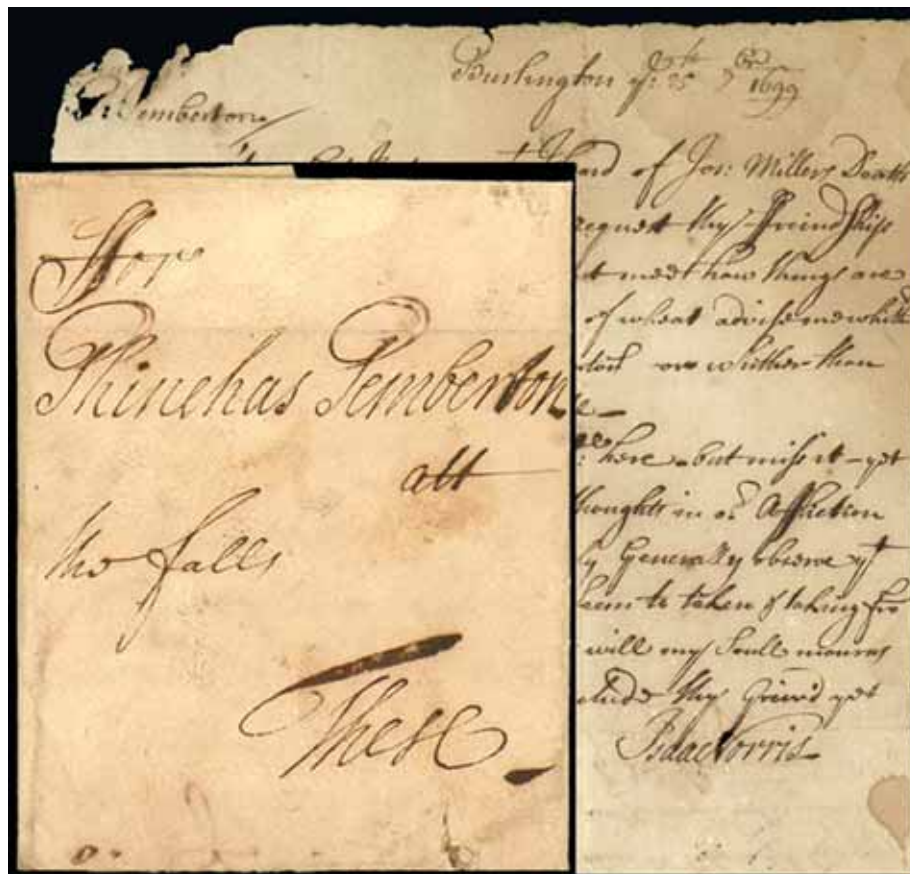 Burlington ye: 25th 7br 1699
P: Pemberton
of Jos: Millers Death
request thy Friendship
meet how things are
of wheat advise me whether
or whither than
here - but miss it - yet
thoughts in or Affliction
Generally observe yt
seem to taken & taking fro
will my Soull mourns
thy Griev'd yet
Isaac Norris
ffor
Phinehas Pemberton
att
the falls
These